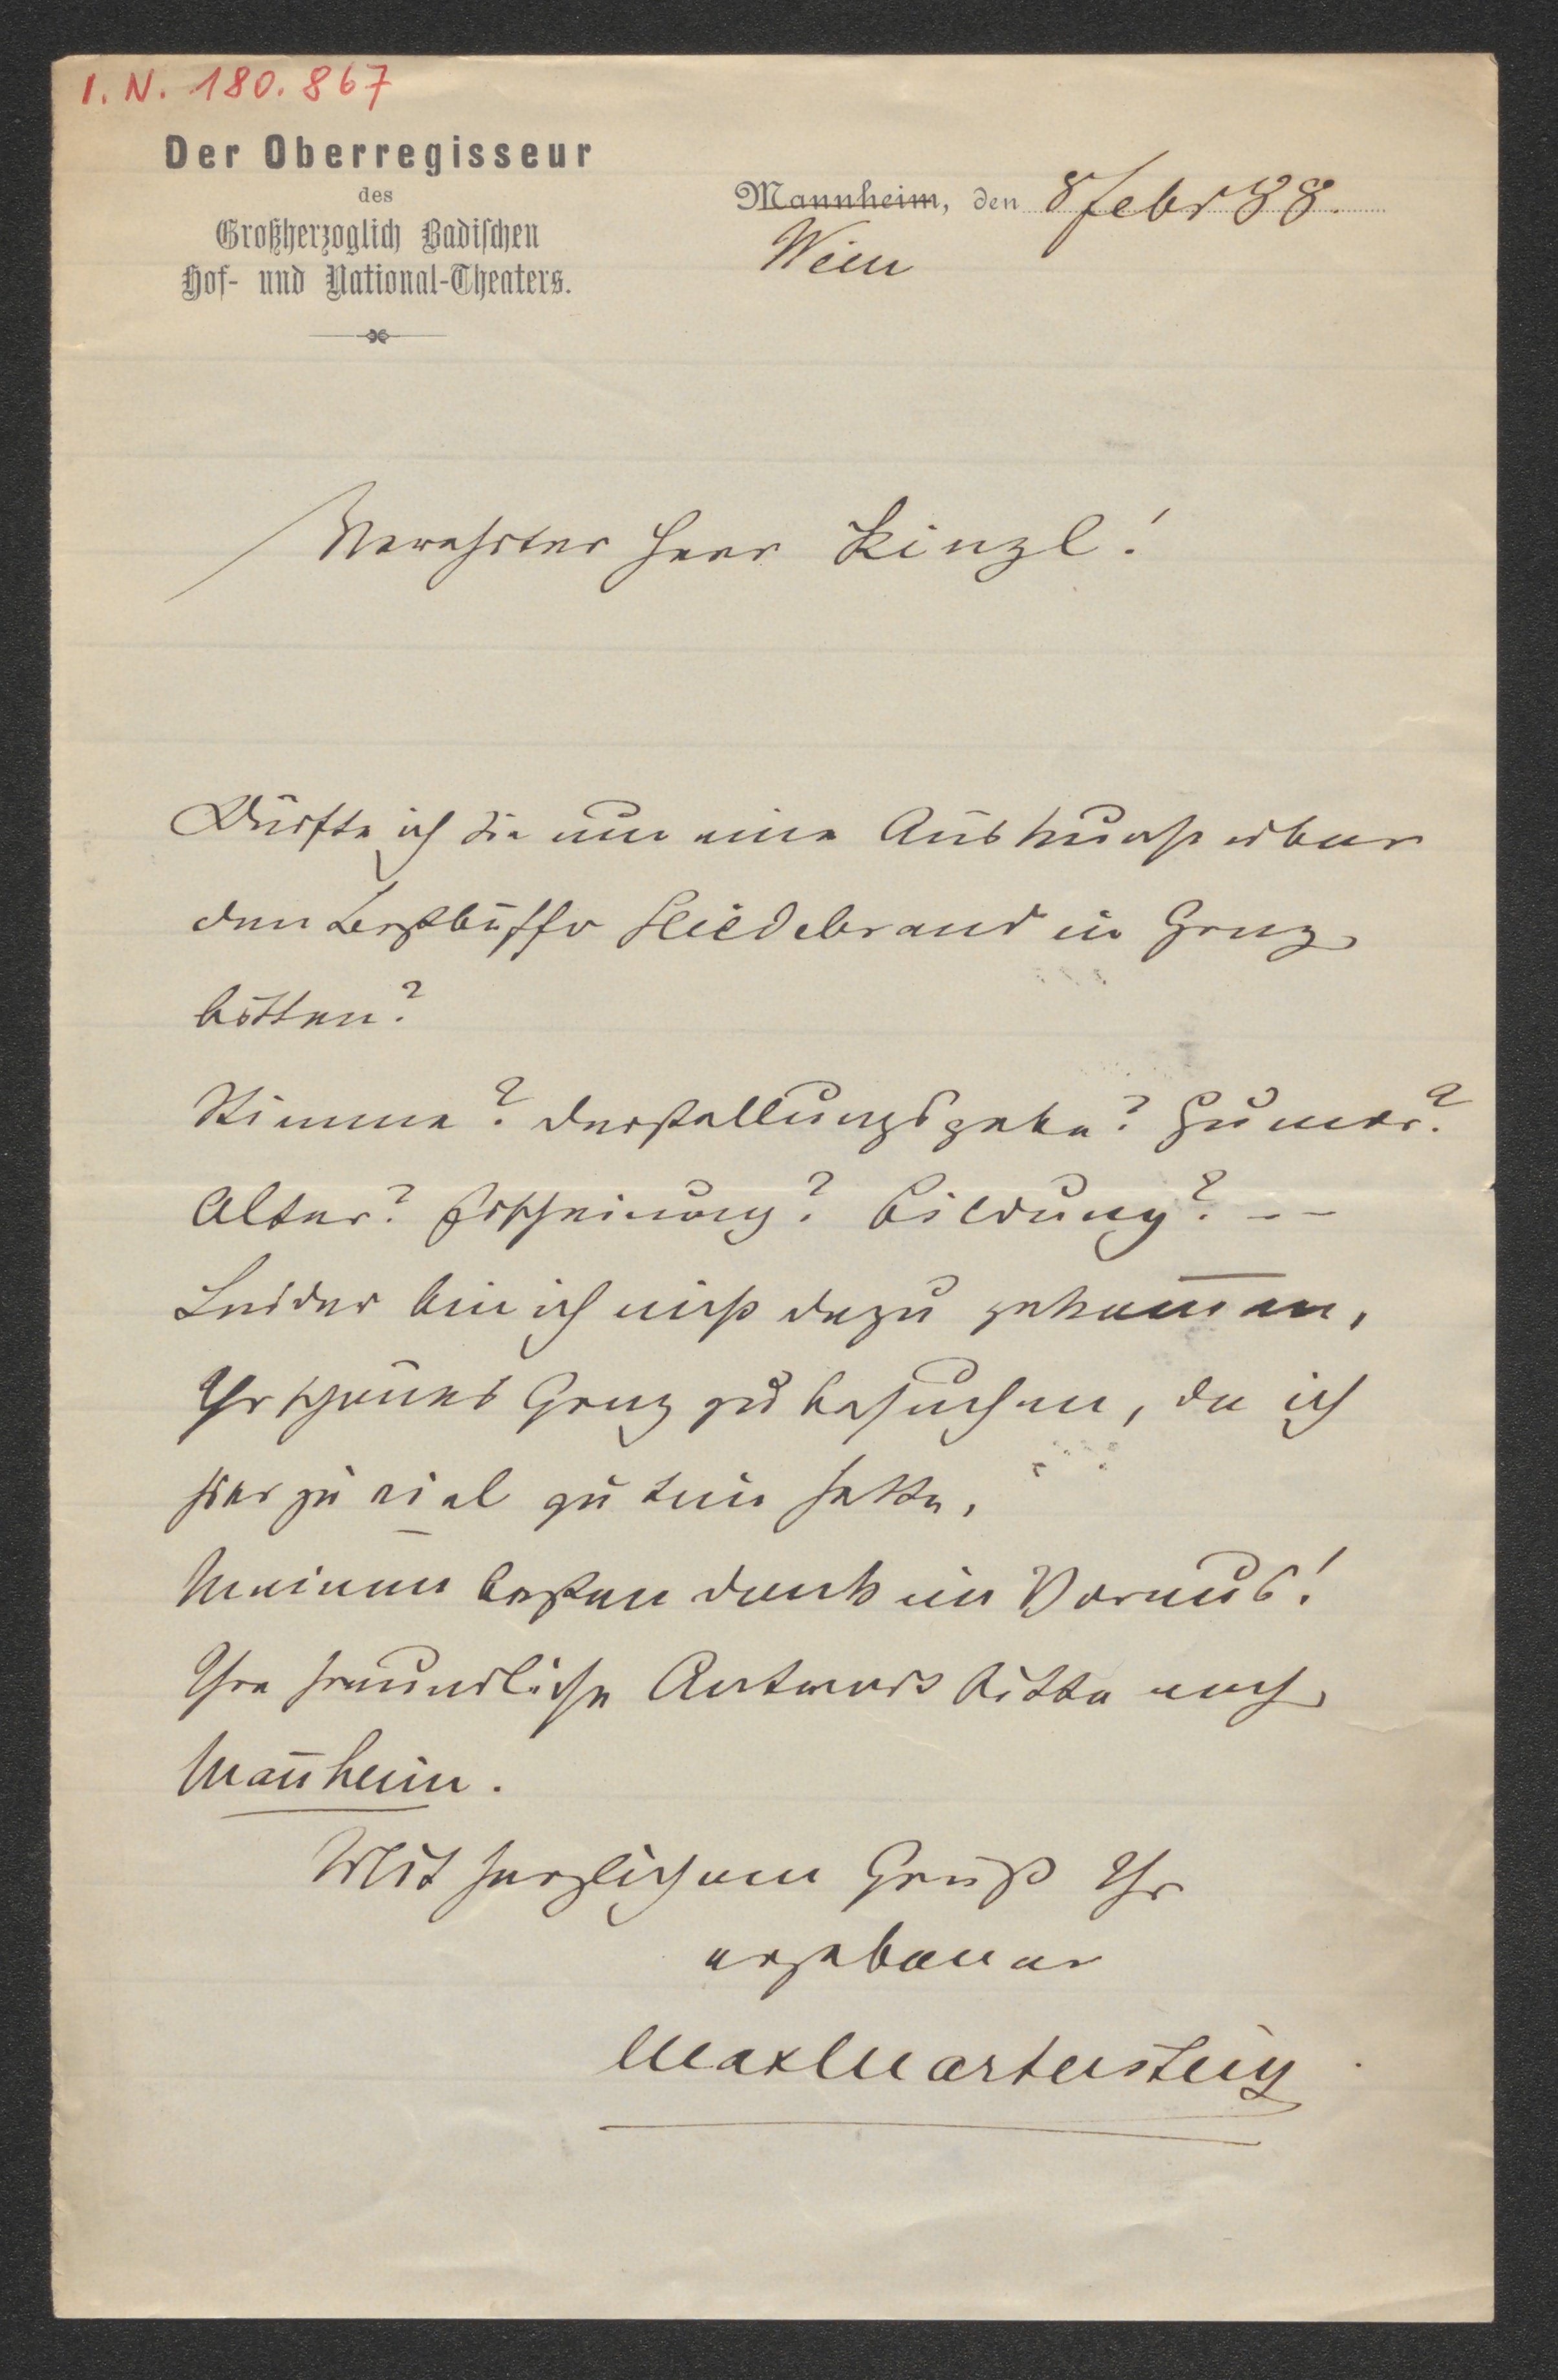 I. N. 180.867
Der Oberregisseur
des
Großherzoglich Badischen
Hof- und National-Theaters.
Mannheim, den 8 Febr 88.
Wien
Verehrter Herr Kinzl!
Dürfte ich Sie um eine Auskunft über
den Baßbuffo Hildebrand in Graz
bitten?
Stimme? Darstellungsgabe? Humor?
Alter? Erscheinung? Bildung? – –
Leider bin ich nicht dazu gekom̅en,
Ihr schönes Graz zu besuchen, da ich
hier zu viel zu tun hatte.
Meinen besten Dank im Voraus!
Ihre freundliche Antwort bitte nach
Man̅heim.
Mit herzlichem Gruß Ihr
ergebener
Max Martersteig